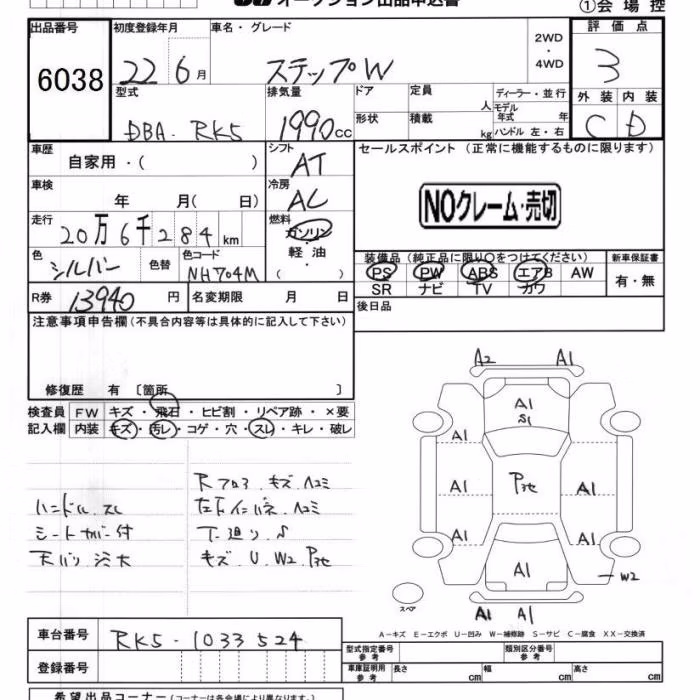 オークション出品申込書
①会場控
出品番号
6038
初度登録年月
22 6月
車名・グレード
ステップW
2WD
・
4WD
評価点
3
型式
DBA-RK5
排気量
1990cc
ドア
定員
人
ディーラー・並行
モデル年式
年
形状
積載
kg
ハンドル 左・右
外装 内装
C D
車歴
自家用・( )
シフト
AT
セールスポイント (正常に機能するものに限ります)
NOクレーム・売切
車検
年 月( 日)
冷房
AC
走行
20万6千284km
燃料
ガソリン
軽・油
( )
色
シルバー
色替
色コード
NH704M
装備品 (純正品に限り○をつけてください)
PS PW ABS エアB AW
SR ナビ TV カワ
新車保証書
有・無
R券
13940円
名変期限 月 日
後日品
注意事項申告欄(不具合内容等は具体的に記入して下さい)
修復歴 有 〔箇所 〕
検査員
記入欄
FW キズ・飛石・ヒビ割・リペア跡・×要
内装 キズ・汚レ・コゲ・穴・スレ・キレ・破レ
ハンドル スレ
シートカバー付
Rフロア キズ・ヘコミ
キズ U W2
A2 A1
A1
S1
A1
A1 A1
A1 A1
A1
W2
A1 A1
スペア
A-キズ E-エクボ U-凹み W-補修跡 S-サビ C-腐食 XX-交換済
車台番号
RK5-1033524
登録番号
型式指定番号
参考
類別区分番号
参考
車庫証明用
参考
長さ cm 幅 cm 高さ cm
希望出品コーナー(コーナーは各会場により異なります)